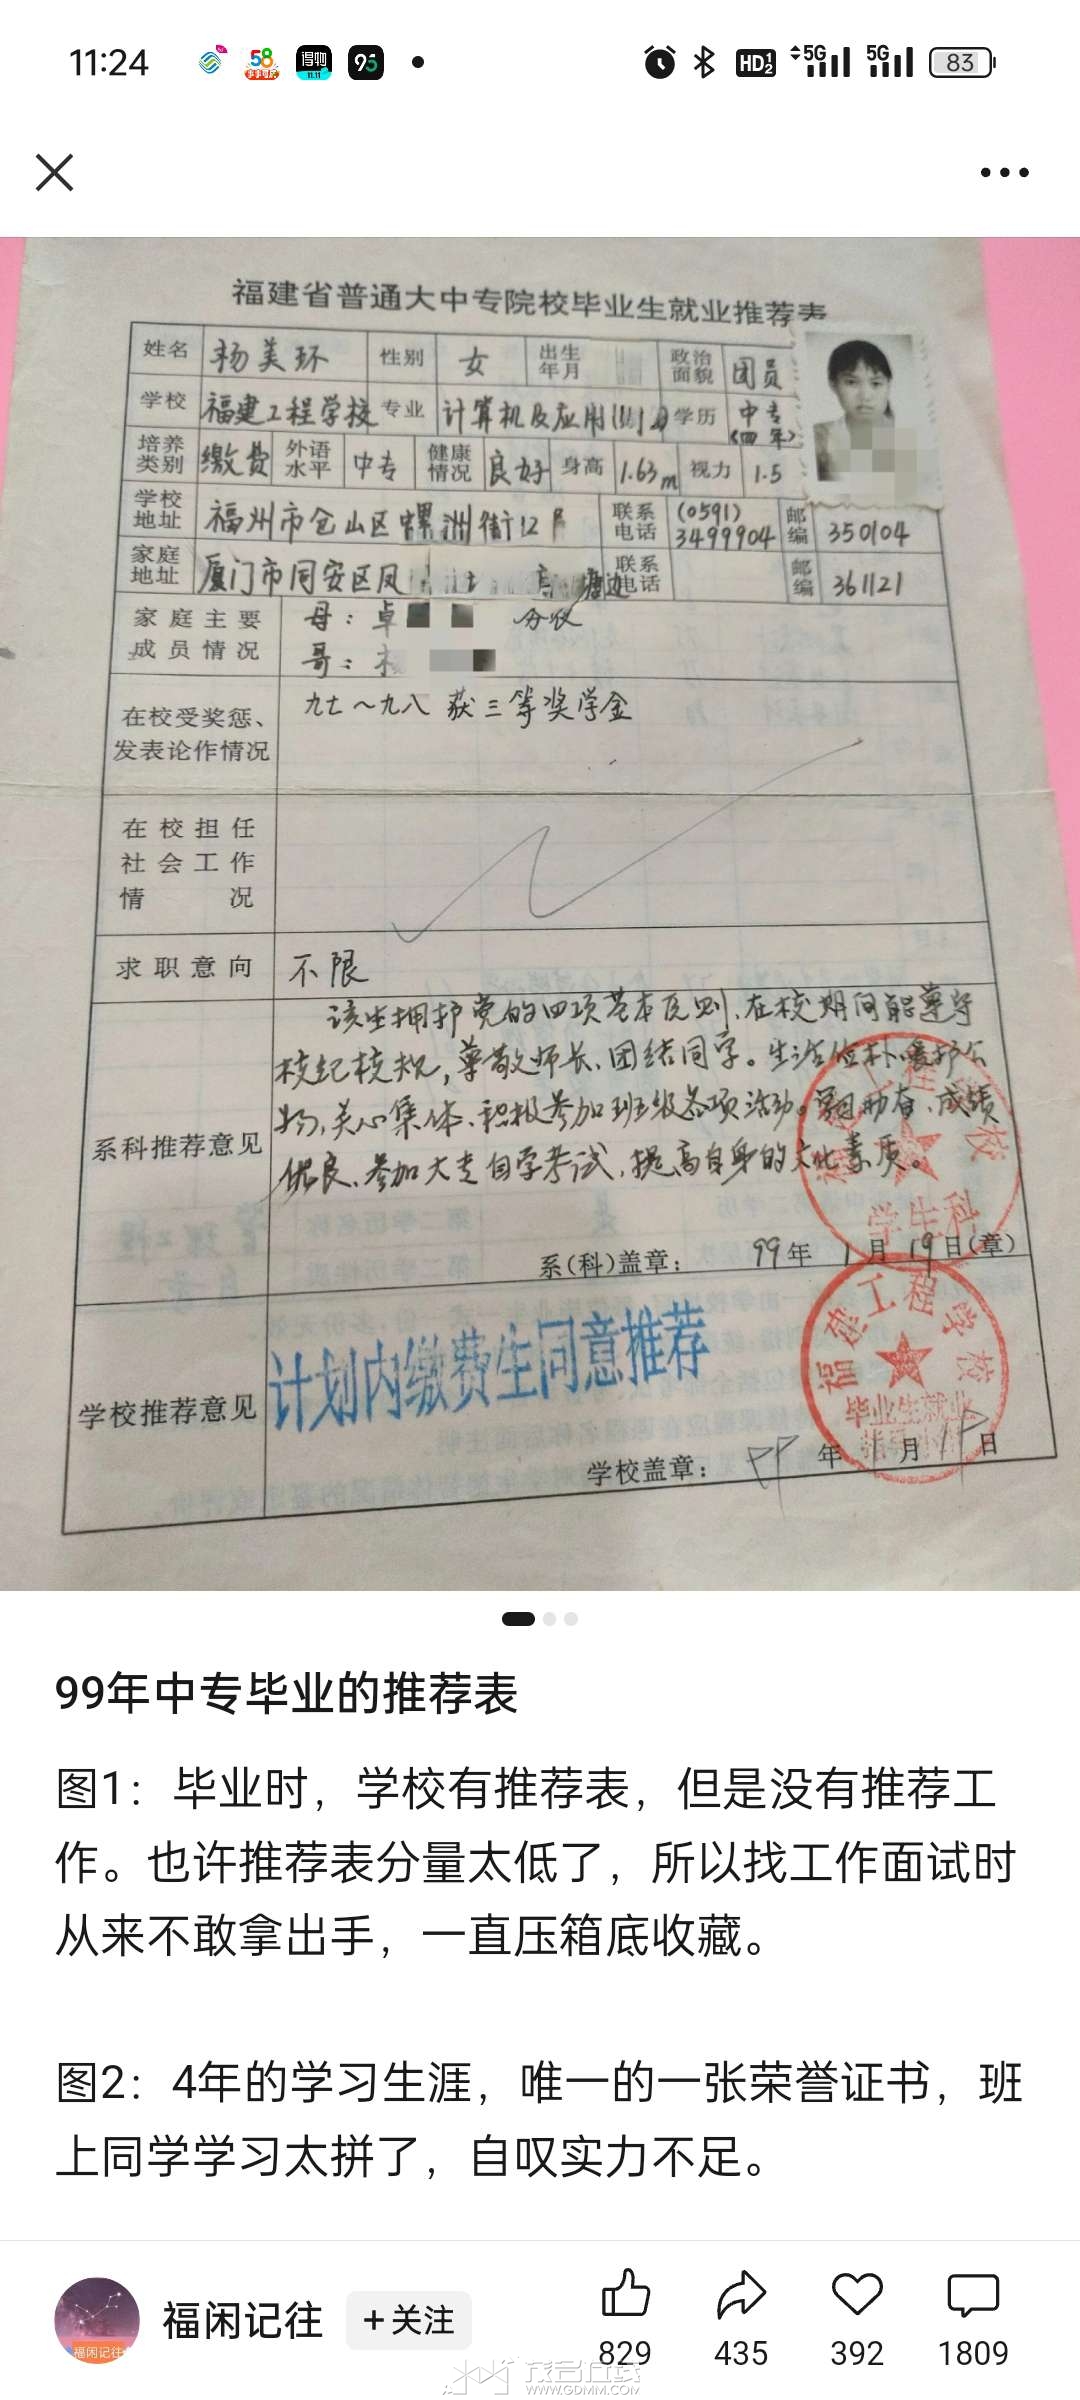 11:24
58
得物
11.11
95
HD
5G
5G
83
福建省普通大中专院校毕业生就业推荐表
姓名 杨美环 性别 女 出生年月 政治面貌 团员
学校 福建工程学校 专业 计算机及应用 学历 中专(四年)
培养类别 缴费 外语水平 中专 健康情况 良好 身高 1.63m 视力 1.5
学校地址 福州市仓山区螺洲街12 联系电话 (0591)3499904 邮编 350104
家庭地址 厦门市同安区凤 联系电话 邮编 361121
家庭主要成员情况 母:卓 务农
哥:
在校受奖惩、发表论作情况 九七~九八 获三等奖学金
在校担任社会工作情况
求职意向 不限
系科推荐意见 该生拥护党的四项基本原则、在校期间能尊守
校纪校规,尊敬师长、团结同学。生活俭朴、爱护公
物,关心集体、积极参加班级各项活动。学习勤奋、成绩
优良、参加大专自学考试,提高自身的文化素质。
系(科)盖章: 99年1月19日(章)
福建工程学校
学生科
学校推荐意见 计划内缴费生同意推荐
学校盖章: 99年 月19日
福建工程学校
毕业生就业
99年中专毕业的推荐表
图1:毕业时,学校有推荐表,但是没有推荐工
作。也许推荐表分量太低了,所以找工作面试时
从来不敢拿出手,一直压箱底收藏。
图2:4年的学习生涯,唯一的一张荣誉证书,班
上同学学习太拼了,自叹实力不足。
福闲记往
福闲记往 +关注
829 435 392 1809
茂名在线
WWW.GDMM.COM